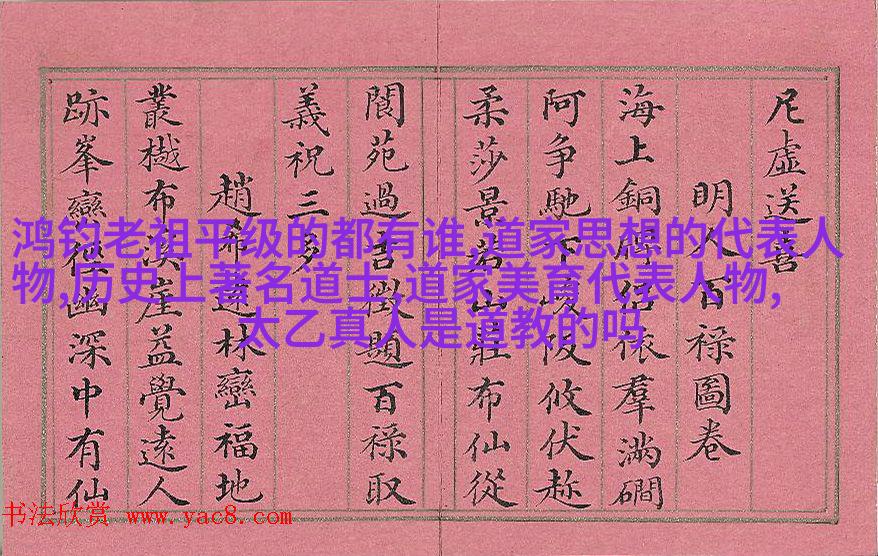 尼虛送喜
明人百祿圖卷
海上銅
依羣滿磵
阿爭馳下
阪攸伏趂
柔莎景若山莊布仙從
閬苑過
徴題百祿取
義祝三多
趙
林巒福地
叢樾布濩崖益覺遠人
跡峯巒徑幽深中有仙
鸿钧老祖平级的都有谁,道家思想的代表人
物,历史上著名道士,道家美育代表人物,
太乙真人是道教的吗
书法欣赏 www.yac8.com